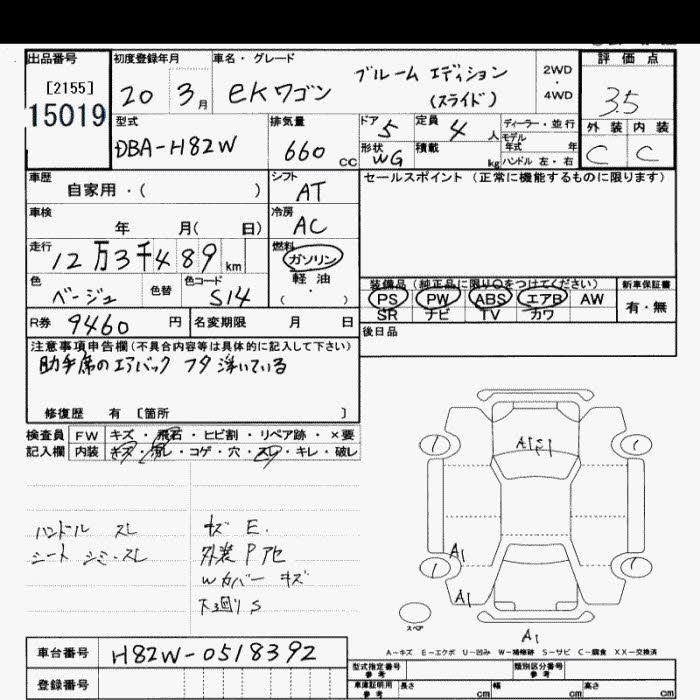 出品番号 初度登録年月 車名・グレード 評価点
[2155] 20 3月 eKワゴン ブルーム エディション 2WD・4WD 3.5
15019 (スライド)
型式 排気量 ドア 定員 ディーラー・並行 外装 内装
DBA-H82W 660 CC 5 4 人 モデル年式 年 C C
形状 WG 積載 kg ハンドル 左・右
車歴 シフト セールスポイント (正常に機能するものに限ります)
自家用・( ) AT
車検 冷房
年 月( 日) AC
走行 燃料
12万3千489 km ガソリン
軽油
色 色替 色コード 装備品 (純正品に限り○をつけてください) 新車保証書
ベージュ S14 ( ・ ) PS PW ABS エアB AW 有・無
SR ナビ TV カワ
R券 9460 円 名変期限 月 日
後日品
注意事項申告欄(不具合内容等は具体的に記入して下さい)
助手席のエアバック フタ 浮いている
修復歴 有 [箇所 ]
検査員 FW キズ・飛石・ヒビ割・リペア跡・×要
記入欄 内装 キズ・汚レ・コゲ・穴・スレ・キレ・破レ
A1S1
ハンドル スレ キズ E.
シート シミ・スレ 外装 Pアセ
Wカバー キズ
下廻り S
A1
A1
A1
スペア
A-キズ E-エクボ U-凹み W-補修跡 S-サビ C-腐食 XX-交換済
車台番号 H82W-0518392
型式指定番号 参考 類別区分番号 参考
登録番号 車庫証明用 参考 長さ cm 幅 cm 高さ cm